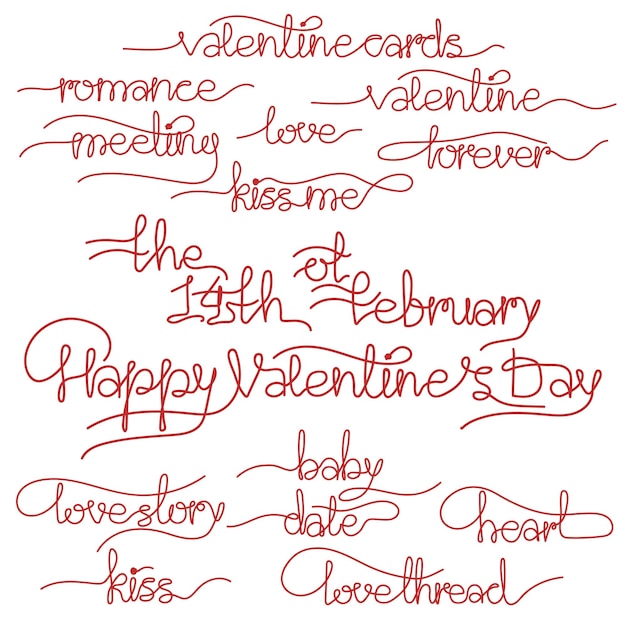 valentine cards
romance
valentine
meeting
love
forever
kiss me
the
14th of February
Happy Valentine's Day
baby
love story
date
heart
kiss
love thread